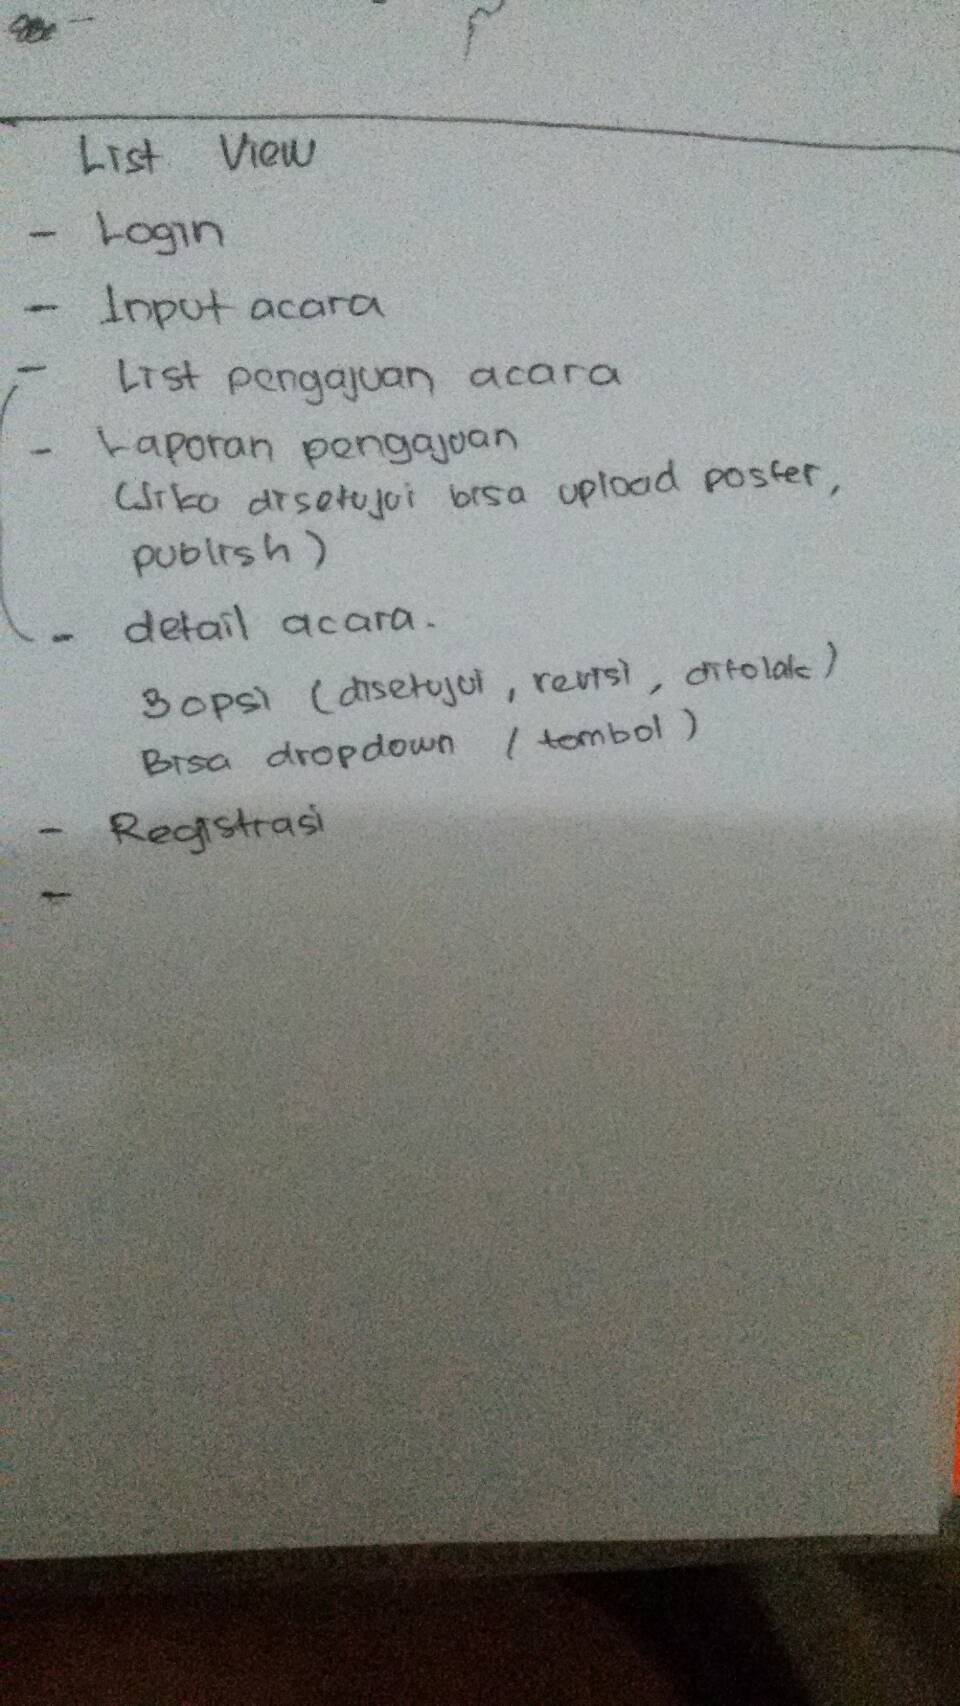 List View
- Login
- Input acara
- List pengajuan acara
- Laporan pengajuan
(Jika disetujui bisa upload poster,
publish)
- detail acara.
3 opsi (disetujui, revisi, ditolak)
Bisa dropdown / tombol)
- Registrasi
-